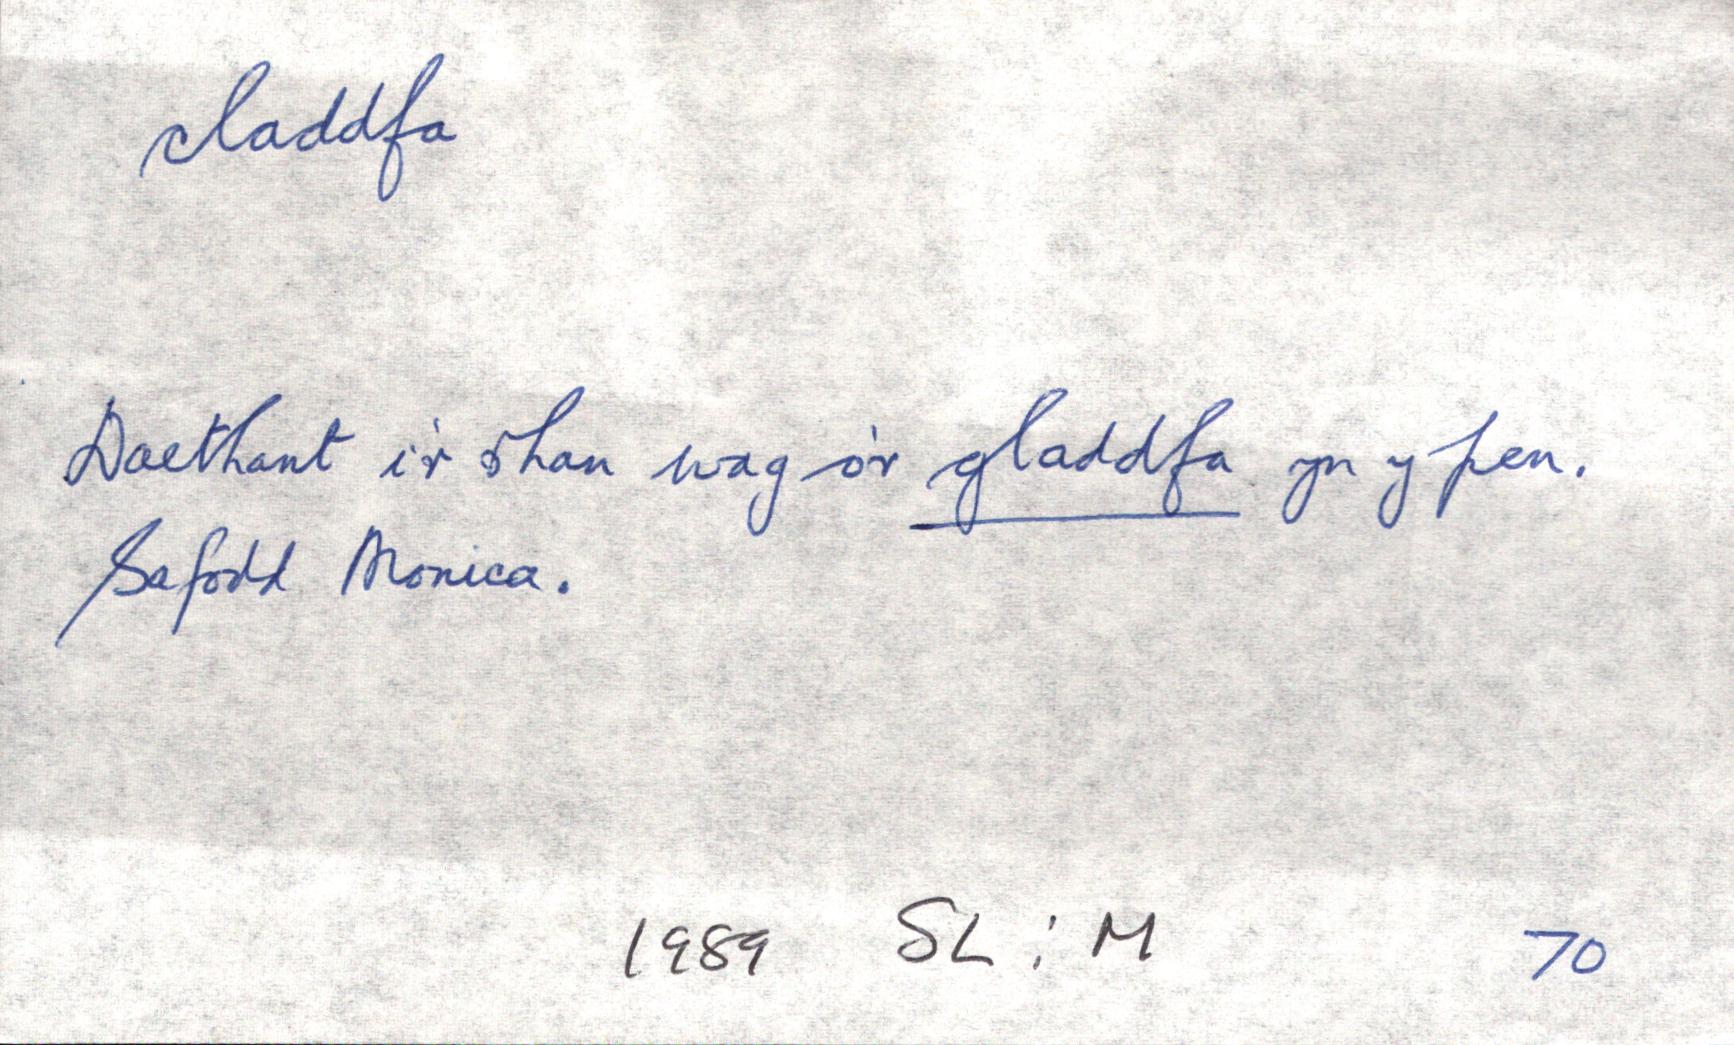 claddfa
Daethant i'r rhan wag o'r gladdfa yn y pen.
Safodd Monica.
1989 SL : M 70